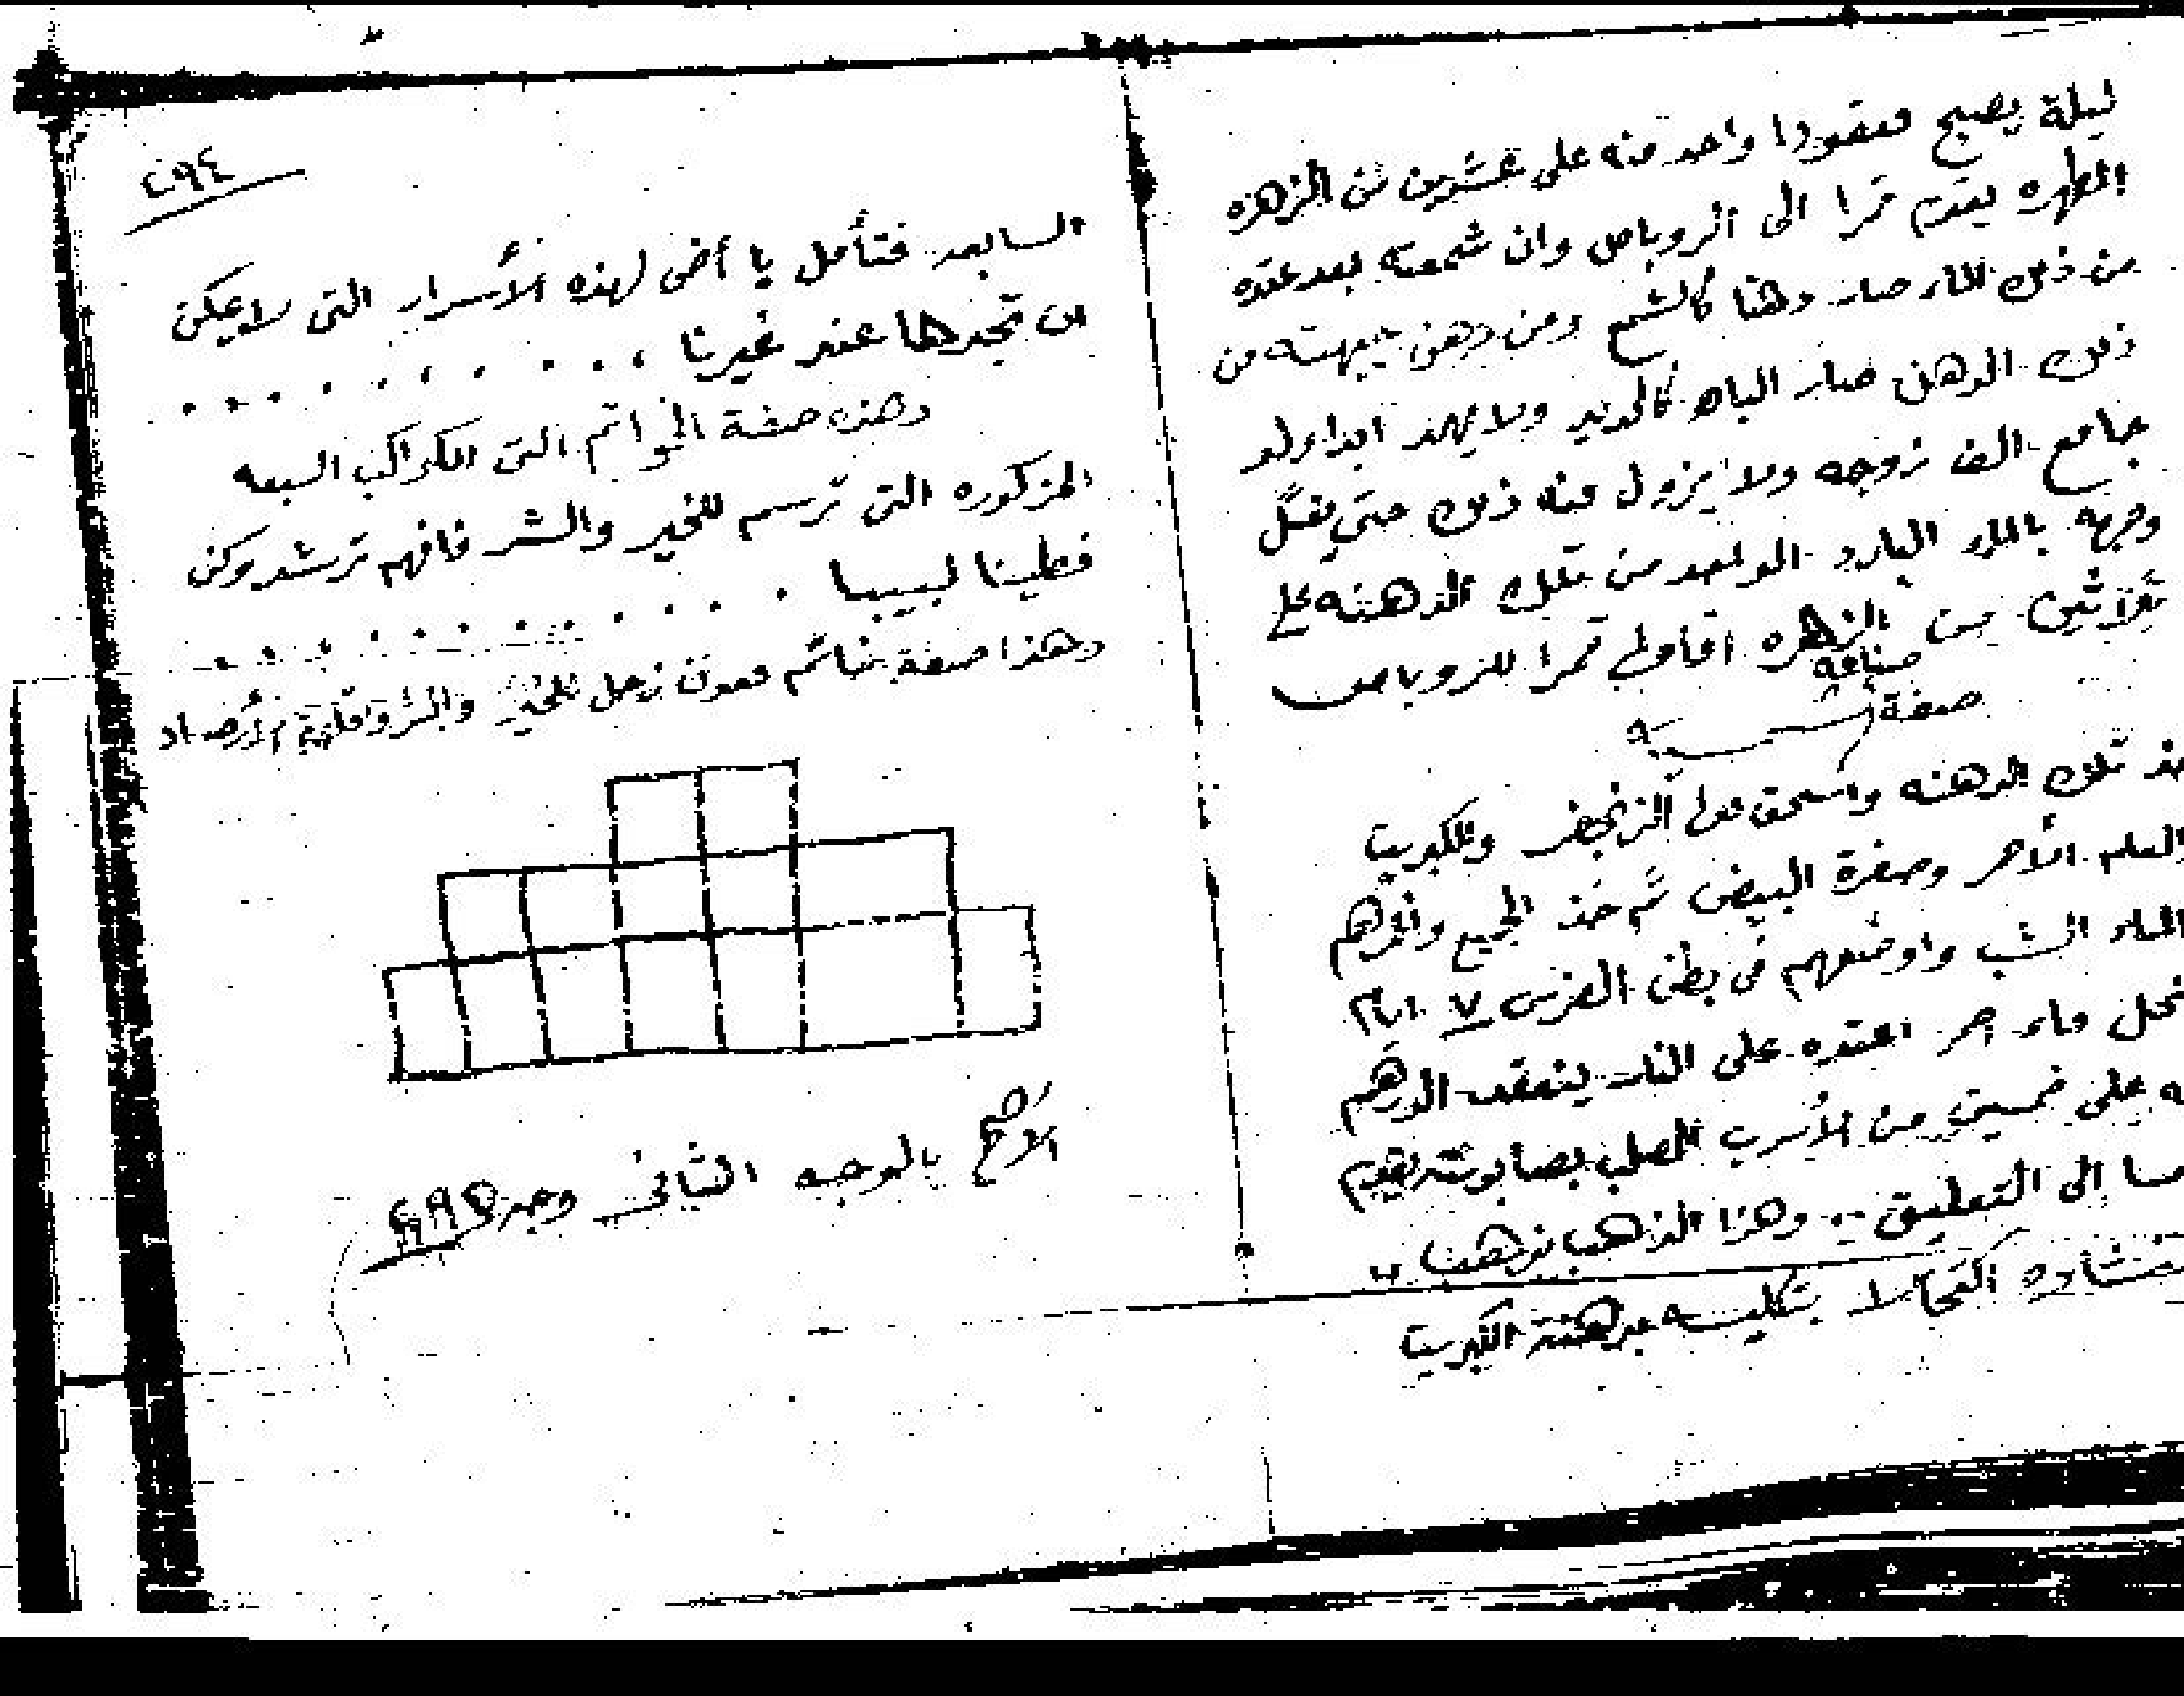 ليلة يصبح معقودا واحد منه على عشرين من الزهره
المطهره يقدم قمرا الى الروباص وان شمعته بعد عقده
من ذلك الماء صار دهنا كالشمع ومن دهن جبهته من
ذلك الدهن صار الباه كالحديد ولا يهمد ابدا ولو
جامع الف زوجه ولا يزول عنه ذلك حتى يغسل
وجهه بالماء البارد الواحد من تلك الدهنه على
ثلاثين من الزهره اقامها قمرا للروباص
صفة صناعة شمسيه
خذ تلك الدهنه واسحق معها الزنجفر والكبريت
والعلم الأحمر وصفرة البيض ثم خذ الجميع
الماء الشب واوضعهم في بطن الفرس ٧ ايام
تنحل ماء احمر اعقده على النار ينعقد الدرهم
منه على خمسين من الأسرب المصلب يقيم
شمسا إلى التعليق .. وهذا الذهب
بتكليسه بدهنة الكبريت
٢٩٤
السابعه فتأمل يا أخى لهذه الأسرار التى لا يمكن
ان تجدها عند غيرنا . . . . . . . . . .
وهذه صفة الخواتم التى الكواكب السبعه
المذكوره التى ترسم للخير والشر فافهم ترشد وكن
فطينا لبيبا . . . . . . . . . . .
وهذا صفة خاتم معدن زحل للخير والشر
بالوجه الثانى وجه ٢٩٥